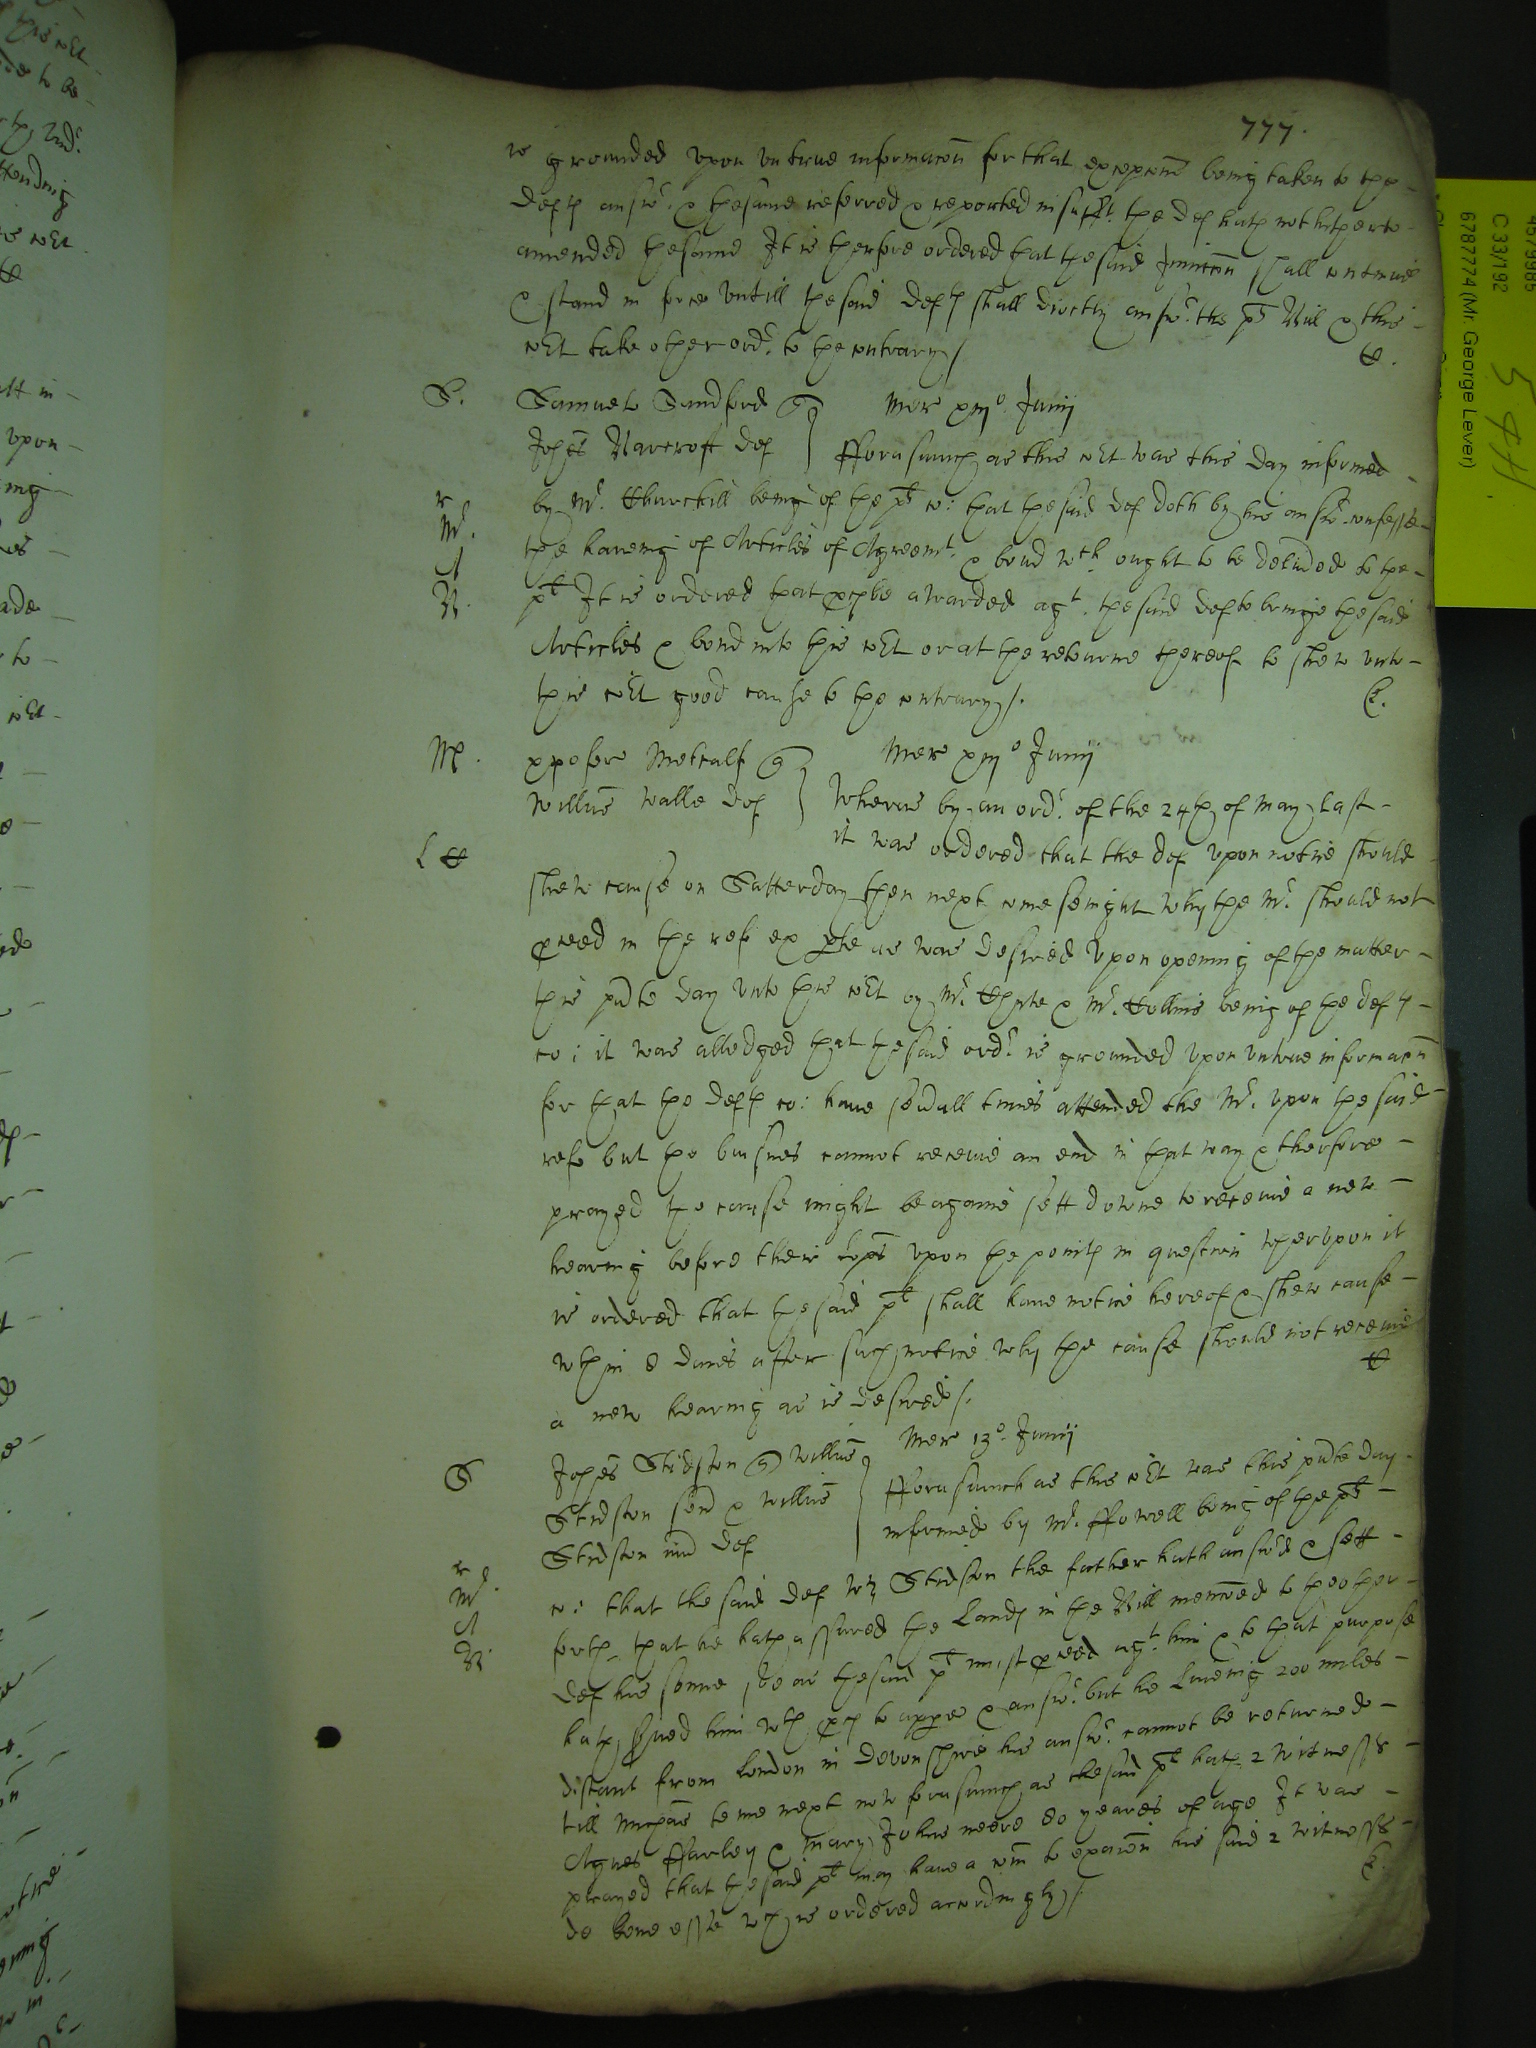 777.
is grounded upon untrue informacon for that excepcons being taken to the
Defts answr. & the same referred & reported insufft. the def hath not hitherto
amended the same It is therfore ordered that the said Iniunccon shall contynue
& stand in force untill the said Defts shall directly answr. the plts Bill & this
cort take other ordr. to the contrary /
S. Samuell Sandford q Mer xiijo. Junij
Johes Barcroft def fforasmuch as this cort was this day informed
by Mr. Churchill being of the plts co: that the said def doth by his answr confesse
the haveing of Articles of Agreemt. & bond wch ought to be delivded to the
plt It is ordered that a spa be awarded agt. the said def to bringe the said
Articles & bond into this cort or at the retourne thereof to shew unto
this cort good cause to the contrary /.
M. xpofer Metcalf q Mer xiijo Junij
Willus Walle def Wheras by an ordr. of the 24th of May last
it was ordered that the def upon notice should
shew cause on Satterday then next come senight why the Mr. should not
pceed in the refe ex pte as was desired Upon opening of the matter
this pnte day unto this cort by Mr. Whyte & Mr. Hollins being of the defts
co: it was alledged that the said ordr. is grounded upon untrue informacn
for that the defts co: have sevall times attended the Mr. upon the said
refe but the busines cannot receive an end in that way & therfore
prayed the cause might be againe sett downe to receive a new
hearing before their lopps upon the points in question wherupon it
is ordered that the said plt shall have notice hereof & shew cause
wthin 8 daies after such notice why the cause should not receive
a new hearing as is desired /.
S Johes Stidston q Willus Mer 13o. Junij
Stidston sen & Willus fforasmuch as this cort was this pnte day
Stidston iun def informed by Mr. ffowell being of the plts
co: that the said def Wm Stidston the father hath answrd & sett
forth that he hath assured the Lands in the Bill menconed to the other
def his sonne soe as the said plt must pceed agt. him & to that purpose
hath served him wth pces to appe & answr. but he liveing 200 miles
distant from London in Devonshire his answr. cannot be returned
till Michas terme next now forasmuch as the said plt hath 2 witnesses
Agnes ffarley & Mary Johns neere 80 yeares of age It was
prayed that the said plt may have a com to examin his said 2 witnesses
de bene esse wch is ordered accordingly /.
C 33/192
6787774 (Mr. George Lever)